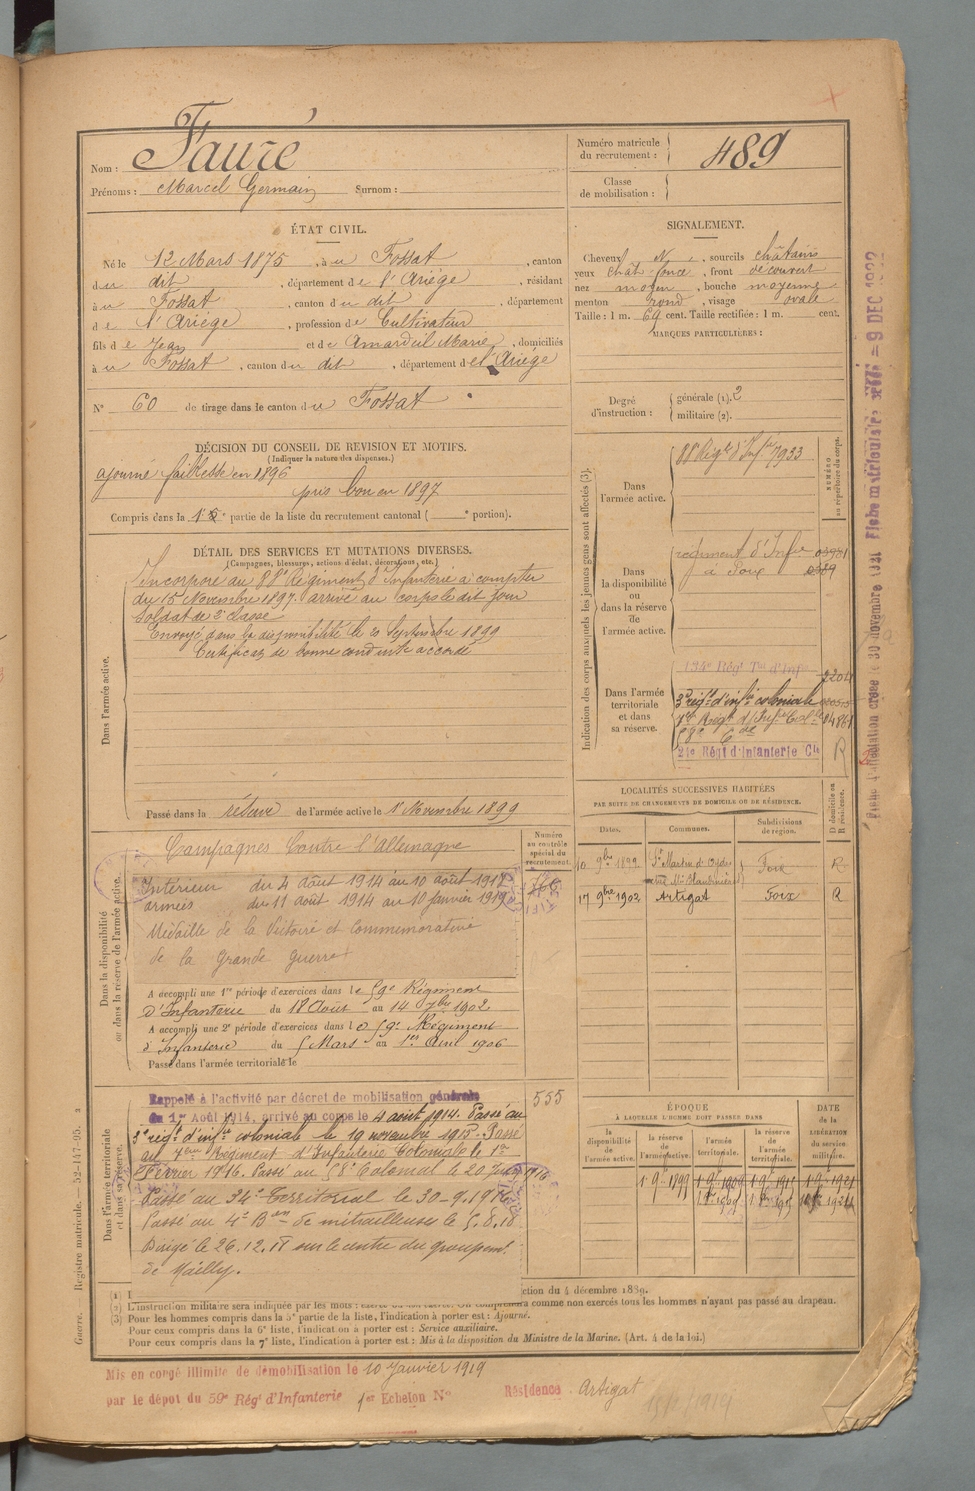 Nom : Fauré
Prénoms : Marcel Germain Surnom :
Numéro matricule du recrutement : 489
Classe de mobilisation :
ÉTAT CIVIL.
Né le 12 Mars 1875, à u Fossat, canton
du dit, département de l'Ariége, résidant
à u Fossat, canton du dit, département
de l'Ariége, profession de Cultivateur
fils de Jean et de Amardeil Marie, domiciliés
à u Fossat, canton du dit, département de l'Ariége
N° 60 de tirage dans le canton du Fossat
SIGNALEMENT.
Cheveux N, sourcils châtains
yeux chât foncé, front découvert
nez moyen, bouche moyenne
menton rond, visage ovale
Taille : 1 m. 69 cent. Taille rectifiée : 1 m. cent.
MARQUES PARTICULIÈRES :
Degré d'instruction : générale (1). 2
militaire (2).
DÉCISION DU CONSEIL DE REVISION ET MOTIFS.
(Indiquer la nature des dispenses.)
ajourné faiblesse en 1896
pris bon en 1897
Compris dans la 1e partie de la liste du recrutement cantonal ( e portion).
DÉTAIL DES SERVICES ET MUTATIONS DIVERSES.
(Campagnes, blessures, actions d'éclat, décorations, etc.)
Dans l'armée active.
Incorporé au 88e Régiment d'Infanterie à compter
du 15 Novembre 1897. arrivé au corps le dit jour
soldat de 2e classe
Envoyé dans la disponibilité le 20 Septembre 1899
Certificat de bonne conduite accordé
Passé dans la réserve de l'armée active le 1er Novembre 1899
Indication des corps auxquels les jeunes gens sont affectés (3).
NUMÉRO au répertoire du corps.
Dans l'armée active.
88e Régt d'Infie 7933
Dans la disponibilité ou dans la réserve de l'armée active.
régiment d'Infie
à Foix
Dans l'armée territoriale et dans sa réserve.
134e Régt Tal d'Infie
3e régt d'infie coloniale
7e Régt d'Infie Colle
58e
21e Régt d'Infanterie Cle
R
LOCALITÉS SUCCESSIVES HABITÉES
PAR SUITE DE CHANGEMENTS DE DOMICILE OU DE RÉSIDENCE.
Dates. Communes. Subdivisions de région. D domicile ou R résidence.
St Martin d'Oydes Foix R
17 9bre 1902 Artigat Foix R
Dans la disponibilité ou dans la réserve de l'armée active.
Numéro au contrôle spécial du recrutement.
Campagnes Contre l'Allemagne
Intérieur du 4 août 1914 au 10 août 1917
armées du 11 août 1914 au 10 janvier 1919
Médaille de la Victoire et Commémorative
de la Grande Guerre
A accompli une 1re période d'exercices dans le 59e Régiment
d'Infanterie du 18 Août au 14 7bre 1902
A accompli une 2e période d'exercices dans le 59e Régiment
d'Infanterie du 5 Mars au 1er Avril 1906
Passé dans l'armée territoriale le
Dans l'armée territoriale et dans sa réserve.
Rappelé à l'activité par décret de mobilisation générale
du 1er Août 1914, arrivé au corps le 4 août 1914. Passé au
3e régt d'infie coloniale le 19 novembre 1915. Passé
au 7eme Régiment d'Infanterie Coloniale le 1er
Février 1916. Passé au 58e Colonial le 20 Juin 1916
Passé au 34e Territorial le 30-9-1916
Passé au 4e Bon de mitrailleuses le 5.8.18
Dirigé le 26.12.18 sur le centre du groupemt
de Mailly.
555
ÉPOQUE
À LAQUELLE L'HOMME DOIT PASSER DANS
la disponibilité de l'armée active. la réserve de l'armée active. l'armée territoriale. la réserve de l'armée territoriale.
DATE de la LIBÉRATION du service militaire.
ction du 4 décembre 1889.
(2) L'instruction militaire sera indiquée par les mots :
comme non exercés tous les hommes n'ayant pas passé au drapeau.
(3) Pour les hommes compris dans la 5e partie de la liste, l'indication à porter est : Ajourné.
Pour ceux compris dans la 6e liste, l'indication à porter est : Service auxiliaire.
Pour ceux compris dans la 7e liste, l'indication à porter est : Mis à la disposition du Ministre de la Marine. (Art. 4 de la loi.)
Guerre. Registre matricule. — 52-147-95.
Mis en congé illimité de démobilisation le 10 Janvier 1919
par le dépôt du 59e Régt d'Infanterie 1er Echelon N° Résidence Artigat